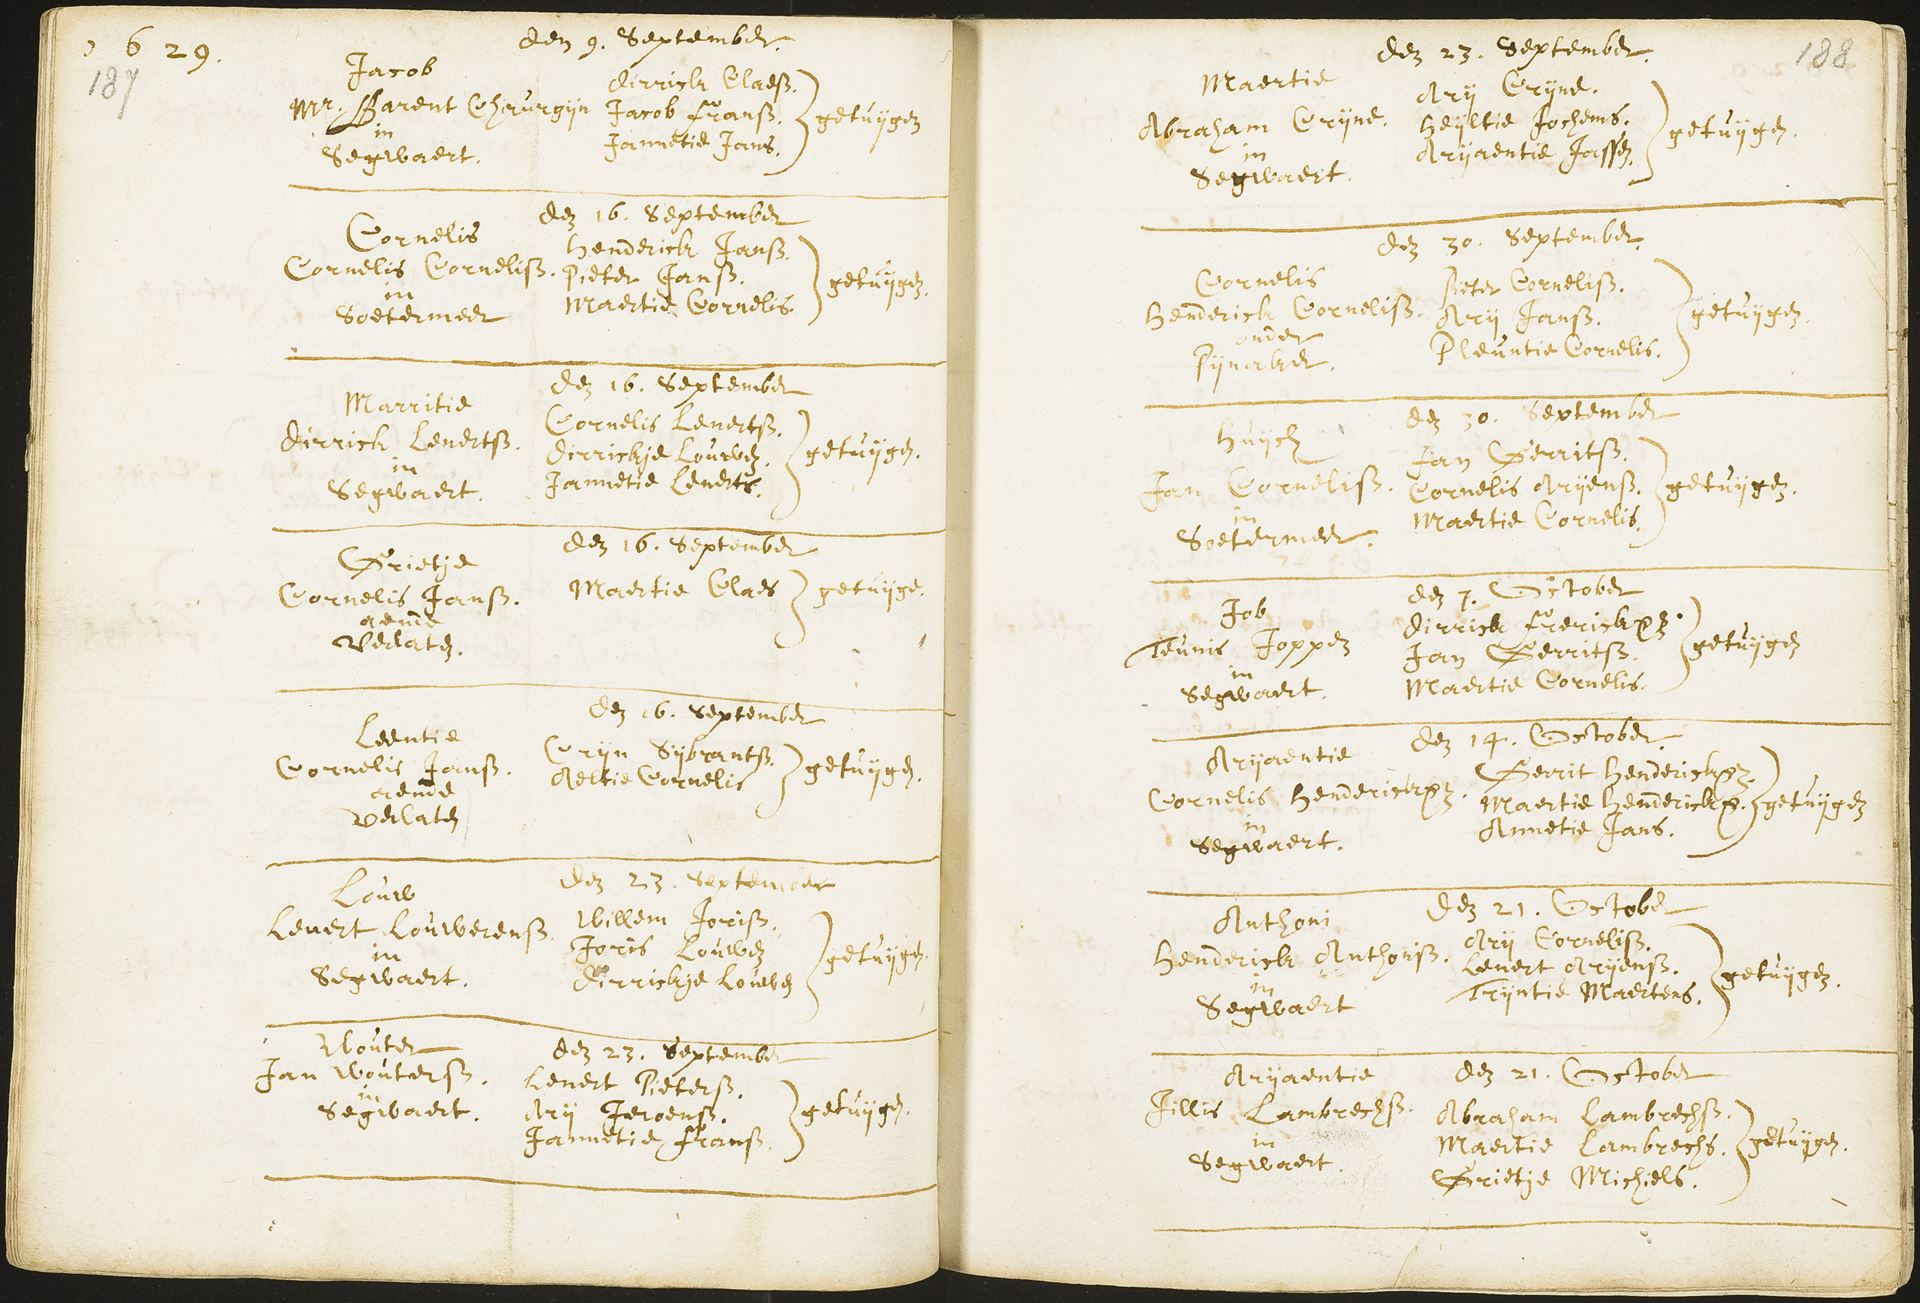 1629.
187
den 9. September.
Jacob
Mr. Barent Chirurgijn
in
Segwaert.
Dirrick Claesz.
Jacob fransz.
Jannetie Jans.
getuijgen
den 16. September
Cornelis
Cornelis Cornelisz.
in
Soetermeer
Henderick Jansz.
Pieter Jansz.
Maertie Cornelis.
getuijgen.
den 16. September
Marritie
Dirrick Lenertsz.
in
Segwaert.
Cornelis Lenertsz.
Dirrickje Louwen.
Jannetie Lenerts.
getuijgen.
den 16. September
Grietje
Cornelis Jansz.
aende
Verlaten.
Maertie Claes
getuijge.
den 16. September
Leentie
Cornelis Jansz.
aende
Verlaten
Crijn Sijbrantsz.
Aeltie Cornelis
getuijgen.
den 23. September
Louw
Lenert Louwerensz.
in
Segwaert.
Willem Jorisz.
Joris Louwen
Dirrickje Louwen
getuijgen.
den 23. September
Wouter
Jan Woutersz.
in
Segwaert.
Lenert Pietersz.
Arij Jeroensz.
Jannetie fransz.
getuijgen.
188
den 23. September.
Maertie
Abraham Crijne.
in
Segwaert.
Arij Crijne.
Heijltie Jochems.
Arijaentie Jassen.
getuijgen.
den 30. September.
Cornelis
Henderick Cornelisz.
onder
Pijnaker.
Pieter Cornelisz.
Arij Jansz.
Pleuntie Cornelis.
getuijgen.
den 30. September
Huijch
Jan Cornelisz.
in
Soetermeer.
Jan Gerritsz.
Cornelis Arijensz.
Maertie Cornelis.
getuijgen.
den 7. October
Job
Teunis Joppen
in
Segwaert.
Dirrick frerickxz.
Jan Gerritsz.
Maertie Cornelis.
getuijgen
den 14. October.
Arijaentie
Cornelis Henderickxz.
in
Segwaert.
Gerrit Henderickxz.
Maertie Henderickx.
Annetie Jans.
getuijgen
den 21. October
Anthoni
Henderick Anthonisz.
in
Segwaert
Arij Cornelisz.
Lenert Arijensz.
Trijntie Maertens.
getuijgen.
den 21. October
Arijaentie
Jillis Lambrechsz.
in
Segwaert.
Abraham Lambrechsz.
Maertie Lambrechs.
Grietje Michiels.
getuijgen.